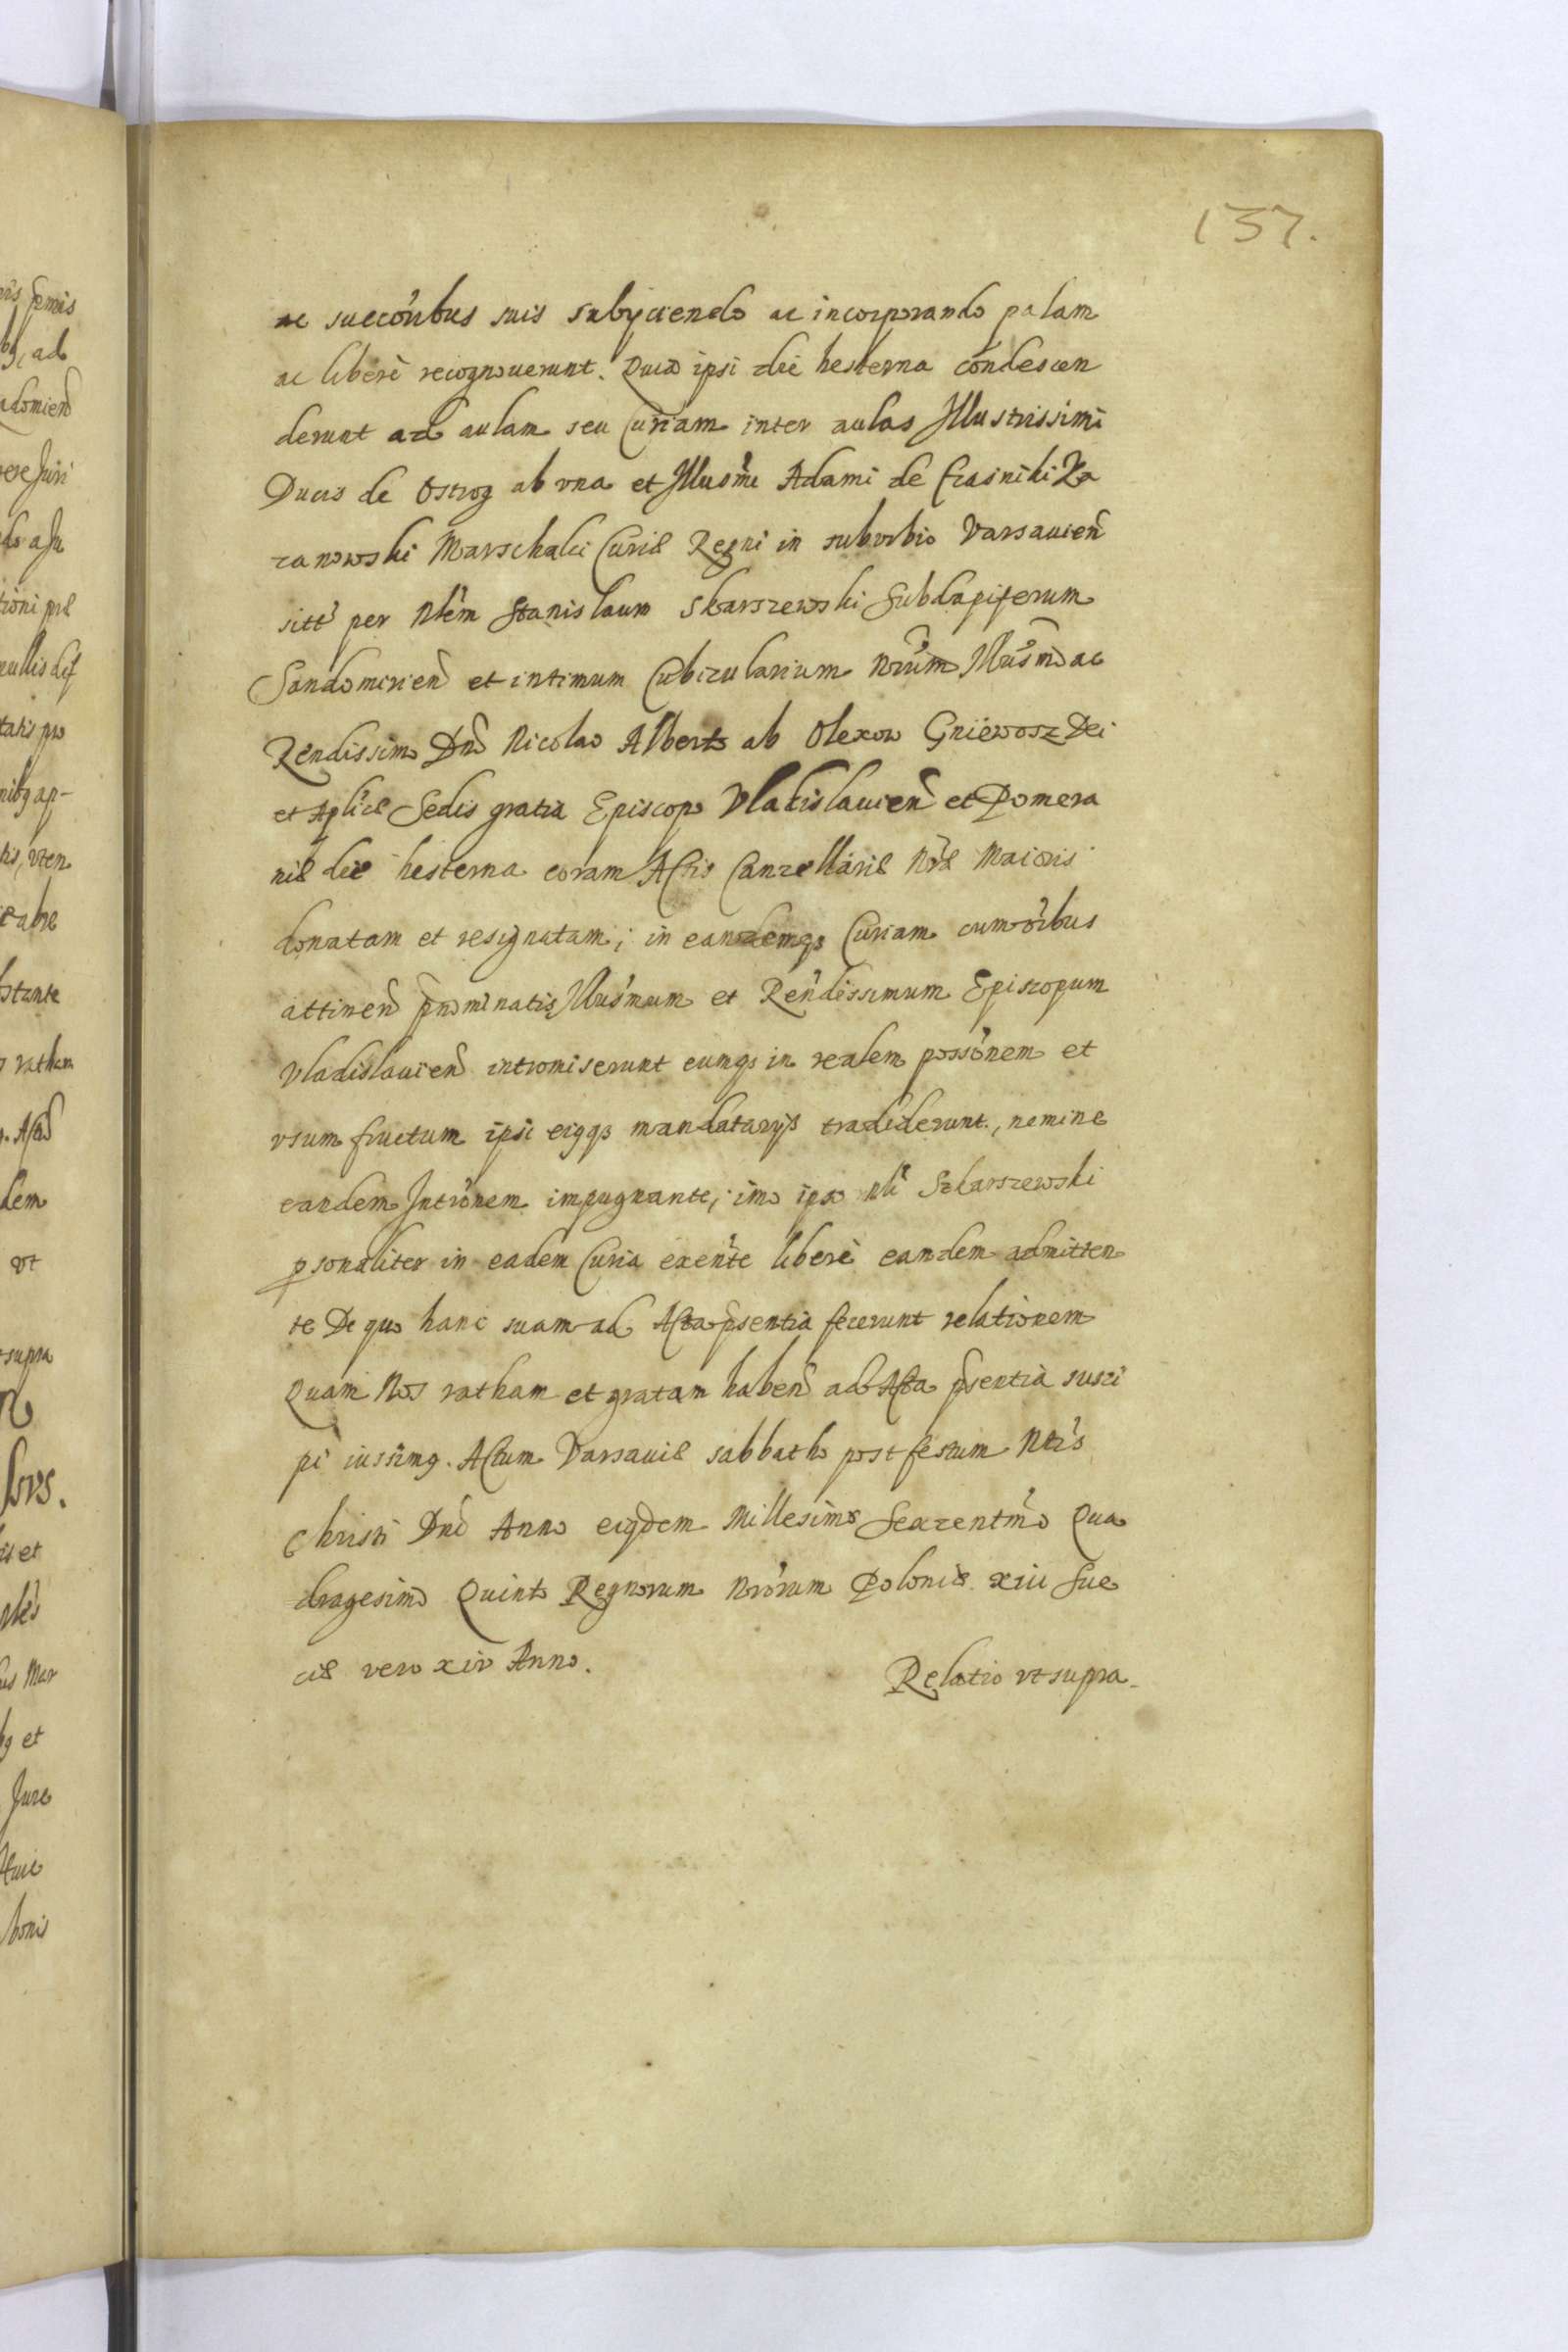 137.
ac succóribus suis subijciendo ac incorporando palam
ac liberè recognouerunt. Quia ipsi die hesterna condescen
derunt ad aulam seu Curiam inter aulas Jllustrissimi
Ducis de Ostrog ab vna et Jllusmi Adami de Crasniki Ka
zanowski Marschalci Curiæ Regni in suburbio Varsauien
sitt per Nlem Stanislaum Skarszewski Subdapiferum
Sandomirien et intimum Cubicularium Nrum Jllusmo ac
Rendissimo Dno Nicolao Alberto ab Olexow Gniewosz Dei
et Aplicæ Sedis gratia Episcopo Vladislauien et Pomera
niæ die hesterna coram Actis Cancellariæ Nræ Maioris
donatam et resignatam; in eandemqȝ Curiam cum oibus
attinen pnominatis Jllusmum et Rendissimum Episcopum
Vladislauien intromiserunt eumqȝ in realem possonem et
vsum fructum ipsi eiqqȝ mandatarijs tradiderunt, nemine
eandem Jntronem impugnante, imo ipso Nli Szkarszewski
psonaliter in eadem Curia exente liberè eandem admitten
te De quo hanc suam ad Acta psentia fecerunt relationem
Quam Nos ratham et gratam haben ad Acta psentia susci
pi iussimq. Actum Varsauiæ sabbatho post festum Ntis
Christi Dni Anno eiqdem Millesimo Sexcentmo Qua
dragesimo Quinto Regnorum Nrorum Poloniæ xiii Sue
ciæ vero xiv Anno.
Relatio vt supra